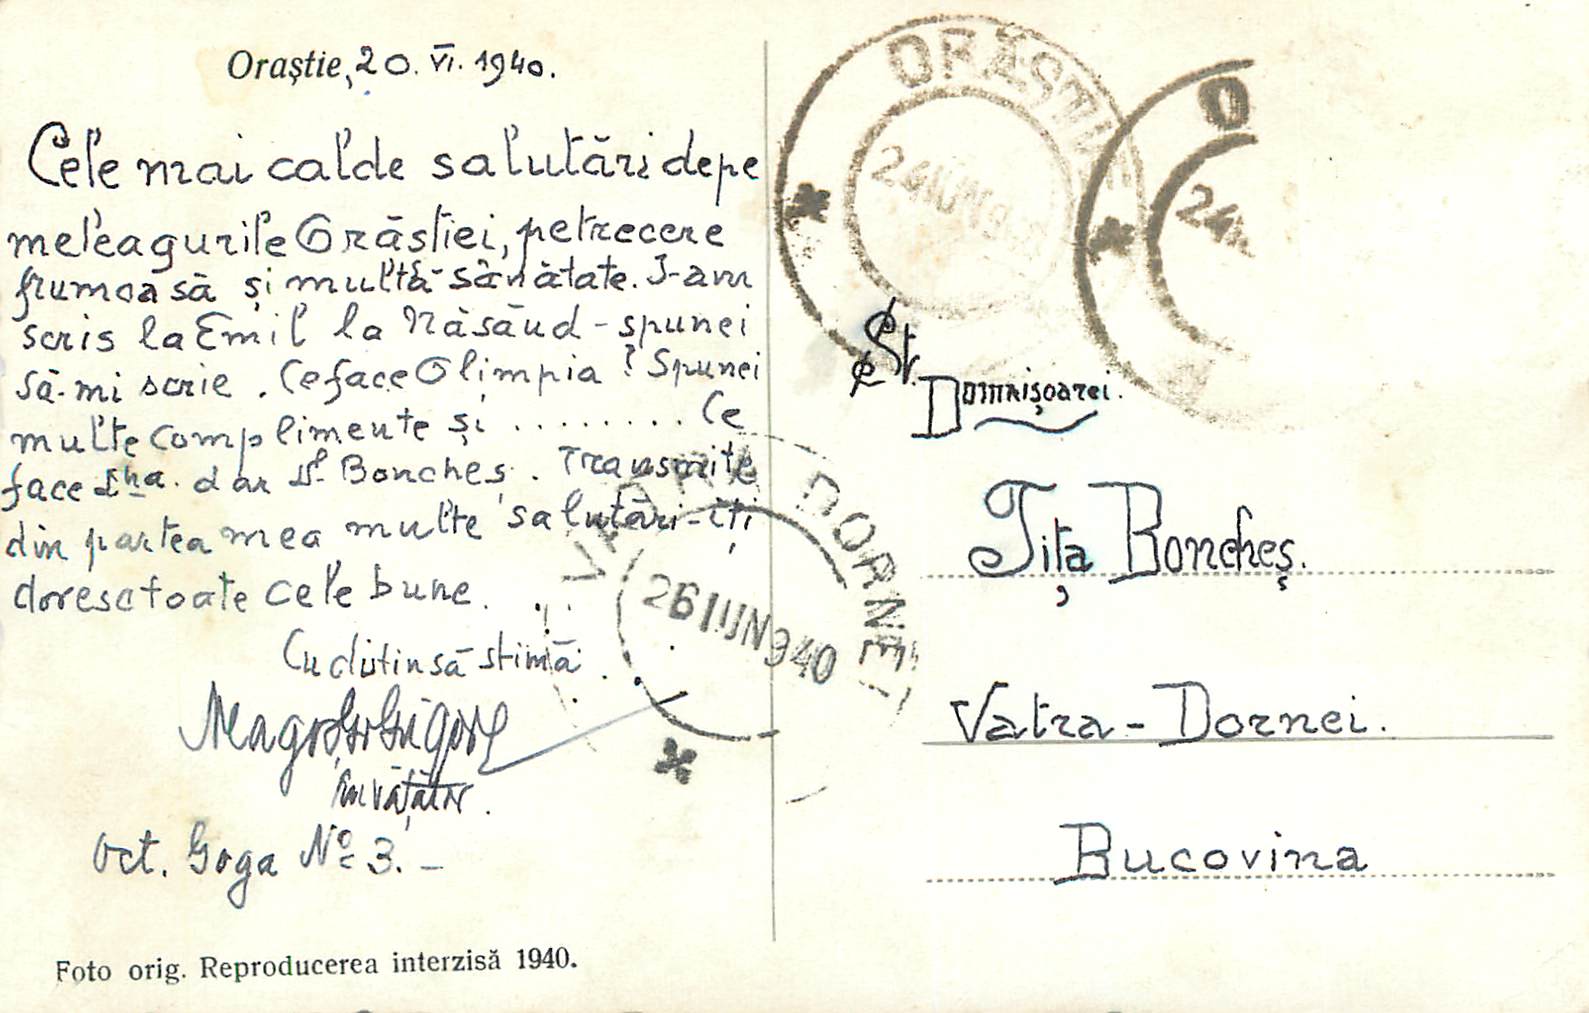 Oraştie, 20. VI. 1940.
Cele mai calde salutări depe
meleagurile Orăstiei, petrecere
frumoasă și multă-sănătate. I-am
scris la Emil la Năsăud - spunei
să-mi scrie. Ce face Olimpia? Spunei
multe complimente și ........ Ce
face Dna. dar Dl Boncheș. Transmite
din partea mea multe salutări-îți
doresc toate cele bune.
Cu distinsă stimă
învățător.
Oct. Goga No 3. -
Foto orig. Reproducerea interzisă 1940.
ORĂȘTIE
24 IUN 940
O
24
VATRA DORNEI
26 IUN 940
St.
Domnișoarei.
Tița Boncheș.
Vatra - Dornei.
Bucovina